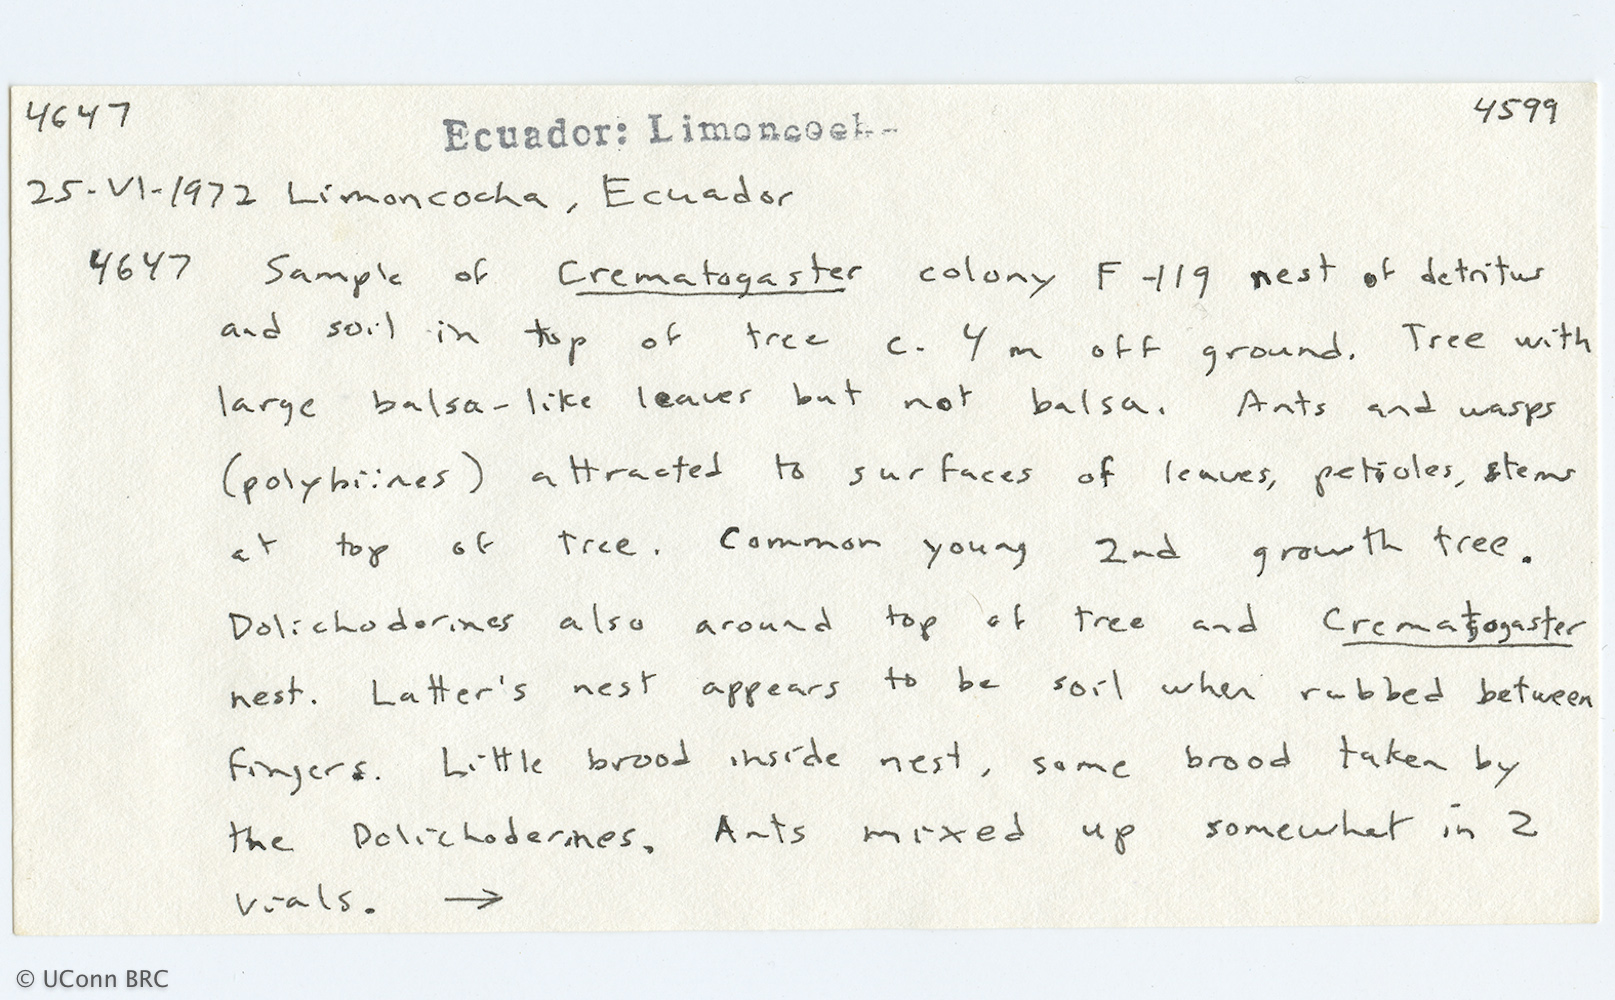 4647
4599
Ecuador: Limoncoch-
25-VI-1972 Limoncocha, Ecuador
4647 Sample of Crematogaster colony F-119 nest of detritus
and soil in top of tree c. 4 m off ground. Tree with
large balsa-like leaves but not balsa. Ants and wasps
(polybiines) attracted to surfaces of leaves, petioles, stems
at top of tree. Common young 2nd growth tree.
Dolichoderines also around top of tree and Crematogaster
nest. Latter's nest appears to be soil when rubbed between
fingers. Little brood inside nest, some brood taken by
the Dolichoderines. Ants mixed up somewhat in 2
vials. →
© UConn BRC